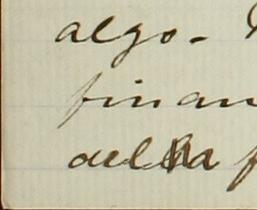 algo-
finan
della